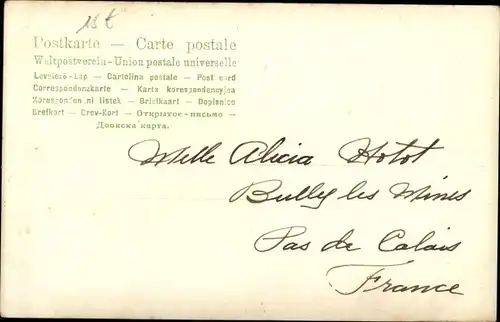 Postkarte — Carte postale
Weltpostverein - Union postale universelle
Levelező-Lap — Cartelina postale — Post card
Correspondenzkarte — Karta korespondencyjna
Korespondenční lístek — Briefkaart — Dopisnice
Brefkort — Crev-Kort — Открытое - письмо —
Дописна карта.
Melle Alicia Hotot
Bully les Mines
Pas de Calais
France